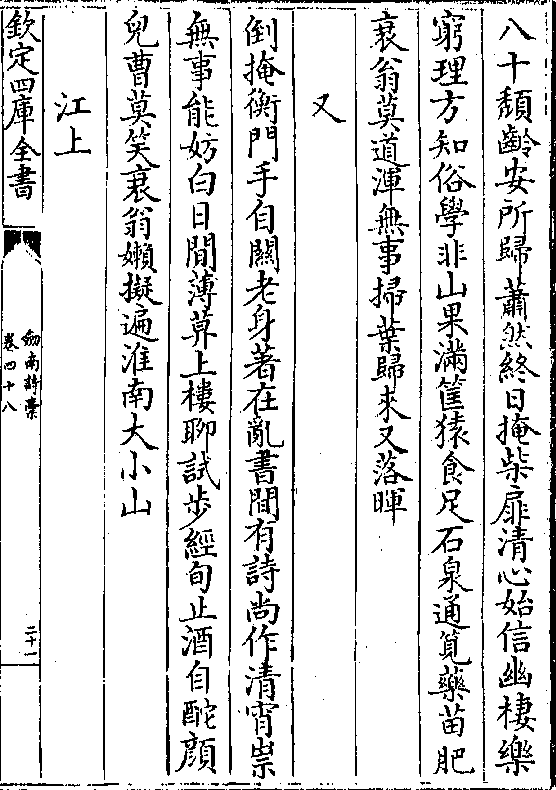 八十頽齡安所歸蕭然終日掩柴扉清心始信幽棲樂
窮理方知俗學非山果滿筐猿食足石泉通筧藥苗肥
衰翁莫道渾無事掃葉歸來又落暉
又
倒掩衡門手自關老身著在亂書間有詩尚作清宵祟
無事能妨白日閒薄莫上樓聊試步經旬止酒自酡顔
兒曹莫笑衰翁嬾擬遍淮南大小山
江上
欽定四庫全書
劒南詩藁
卷四十八
二十一